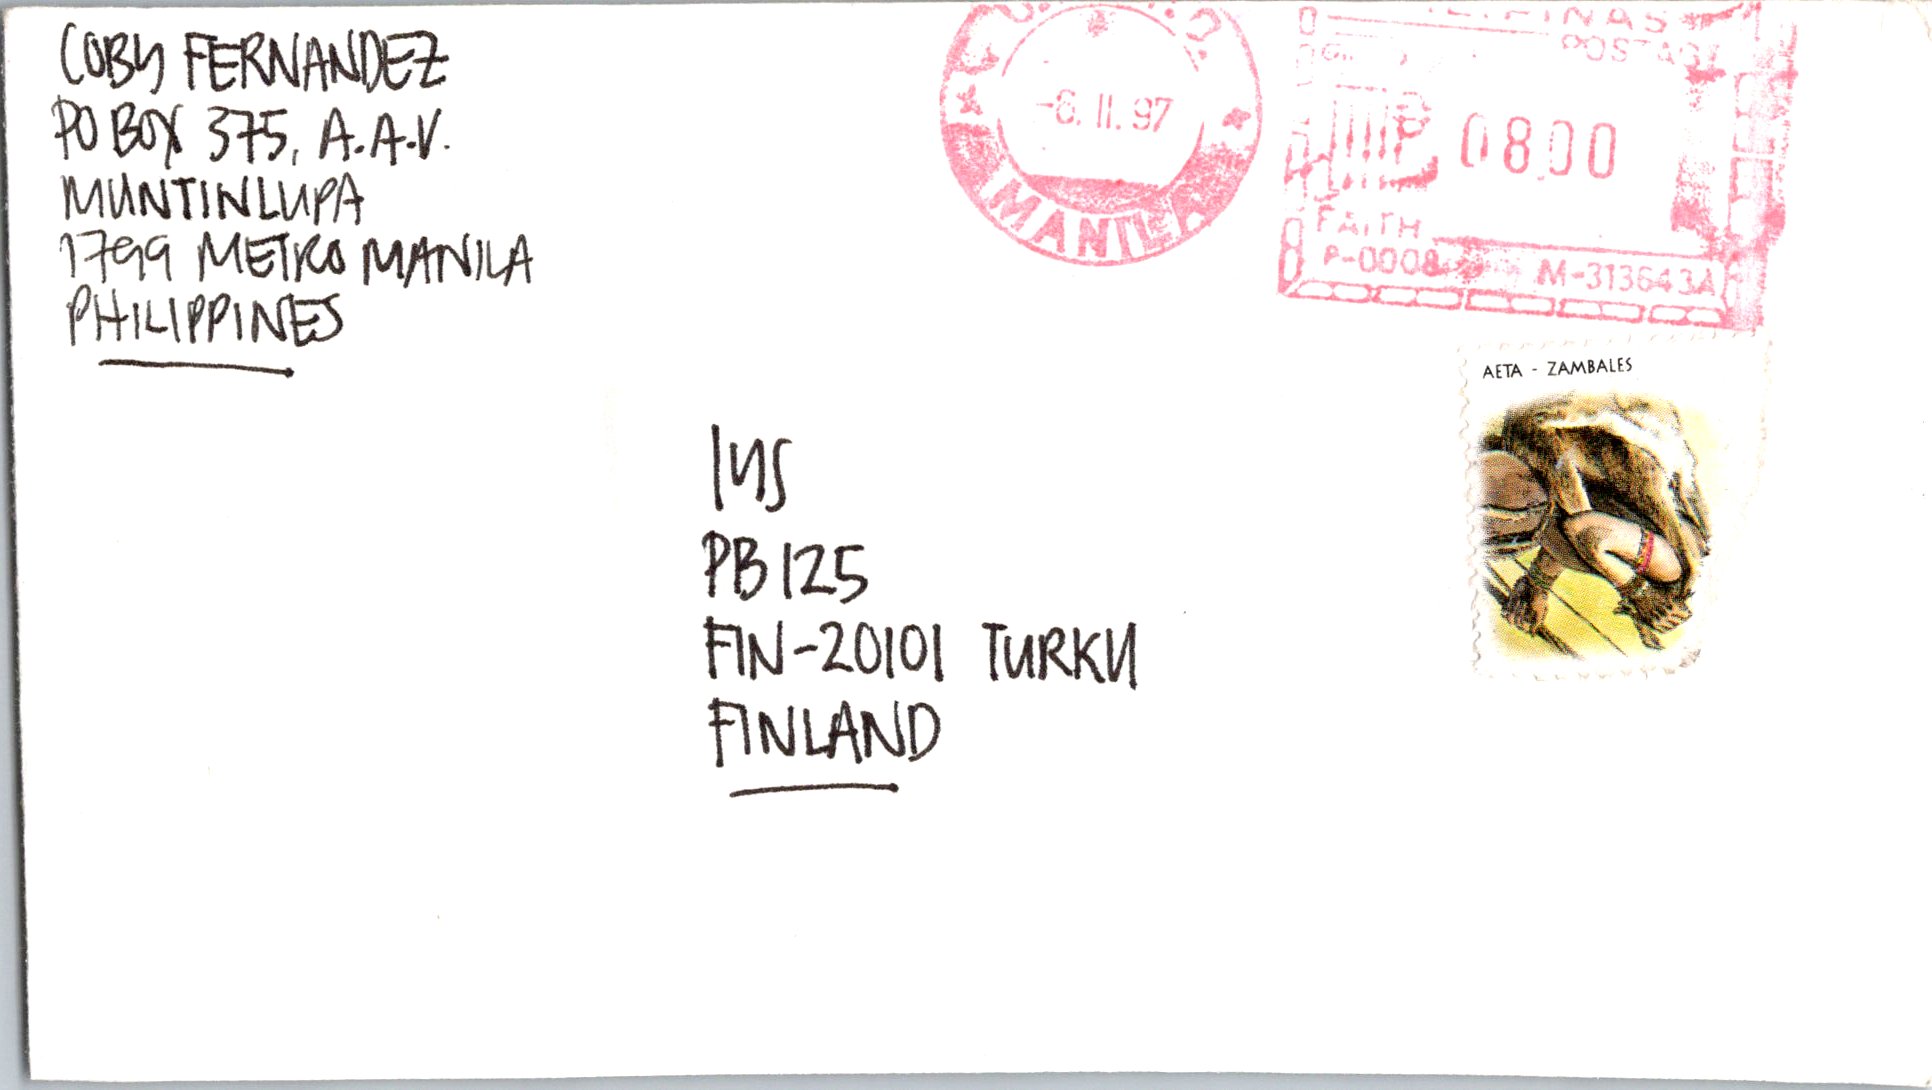 COBY FERNANDEZ
PO BOX 375, A.A.V.
MUNTINLUPA
1799 METRO MANILA
PHILIPPINES
MANILA
PINAS
POSTAGE
0800
FAITH
M-313643A
AETA - ZAMBALES
IYS
PB 125
FIN-20101 TURKU
FINLAND